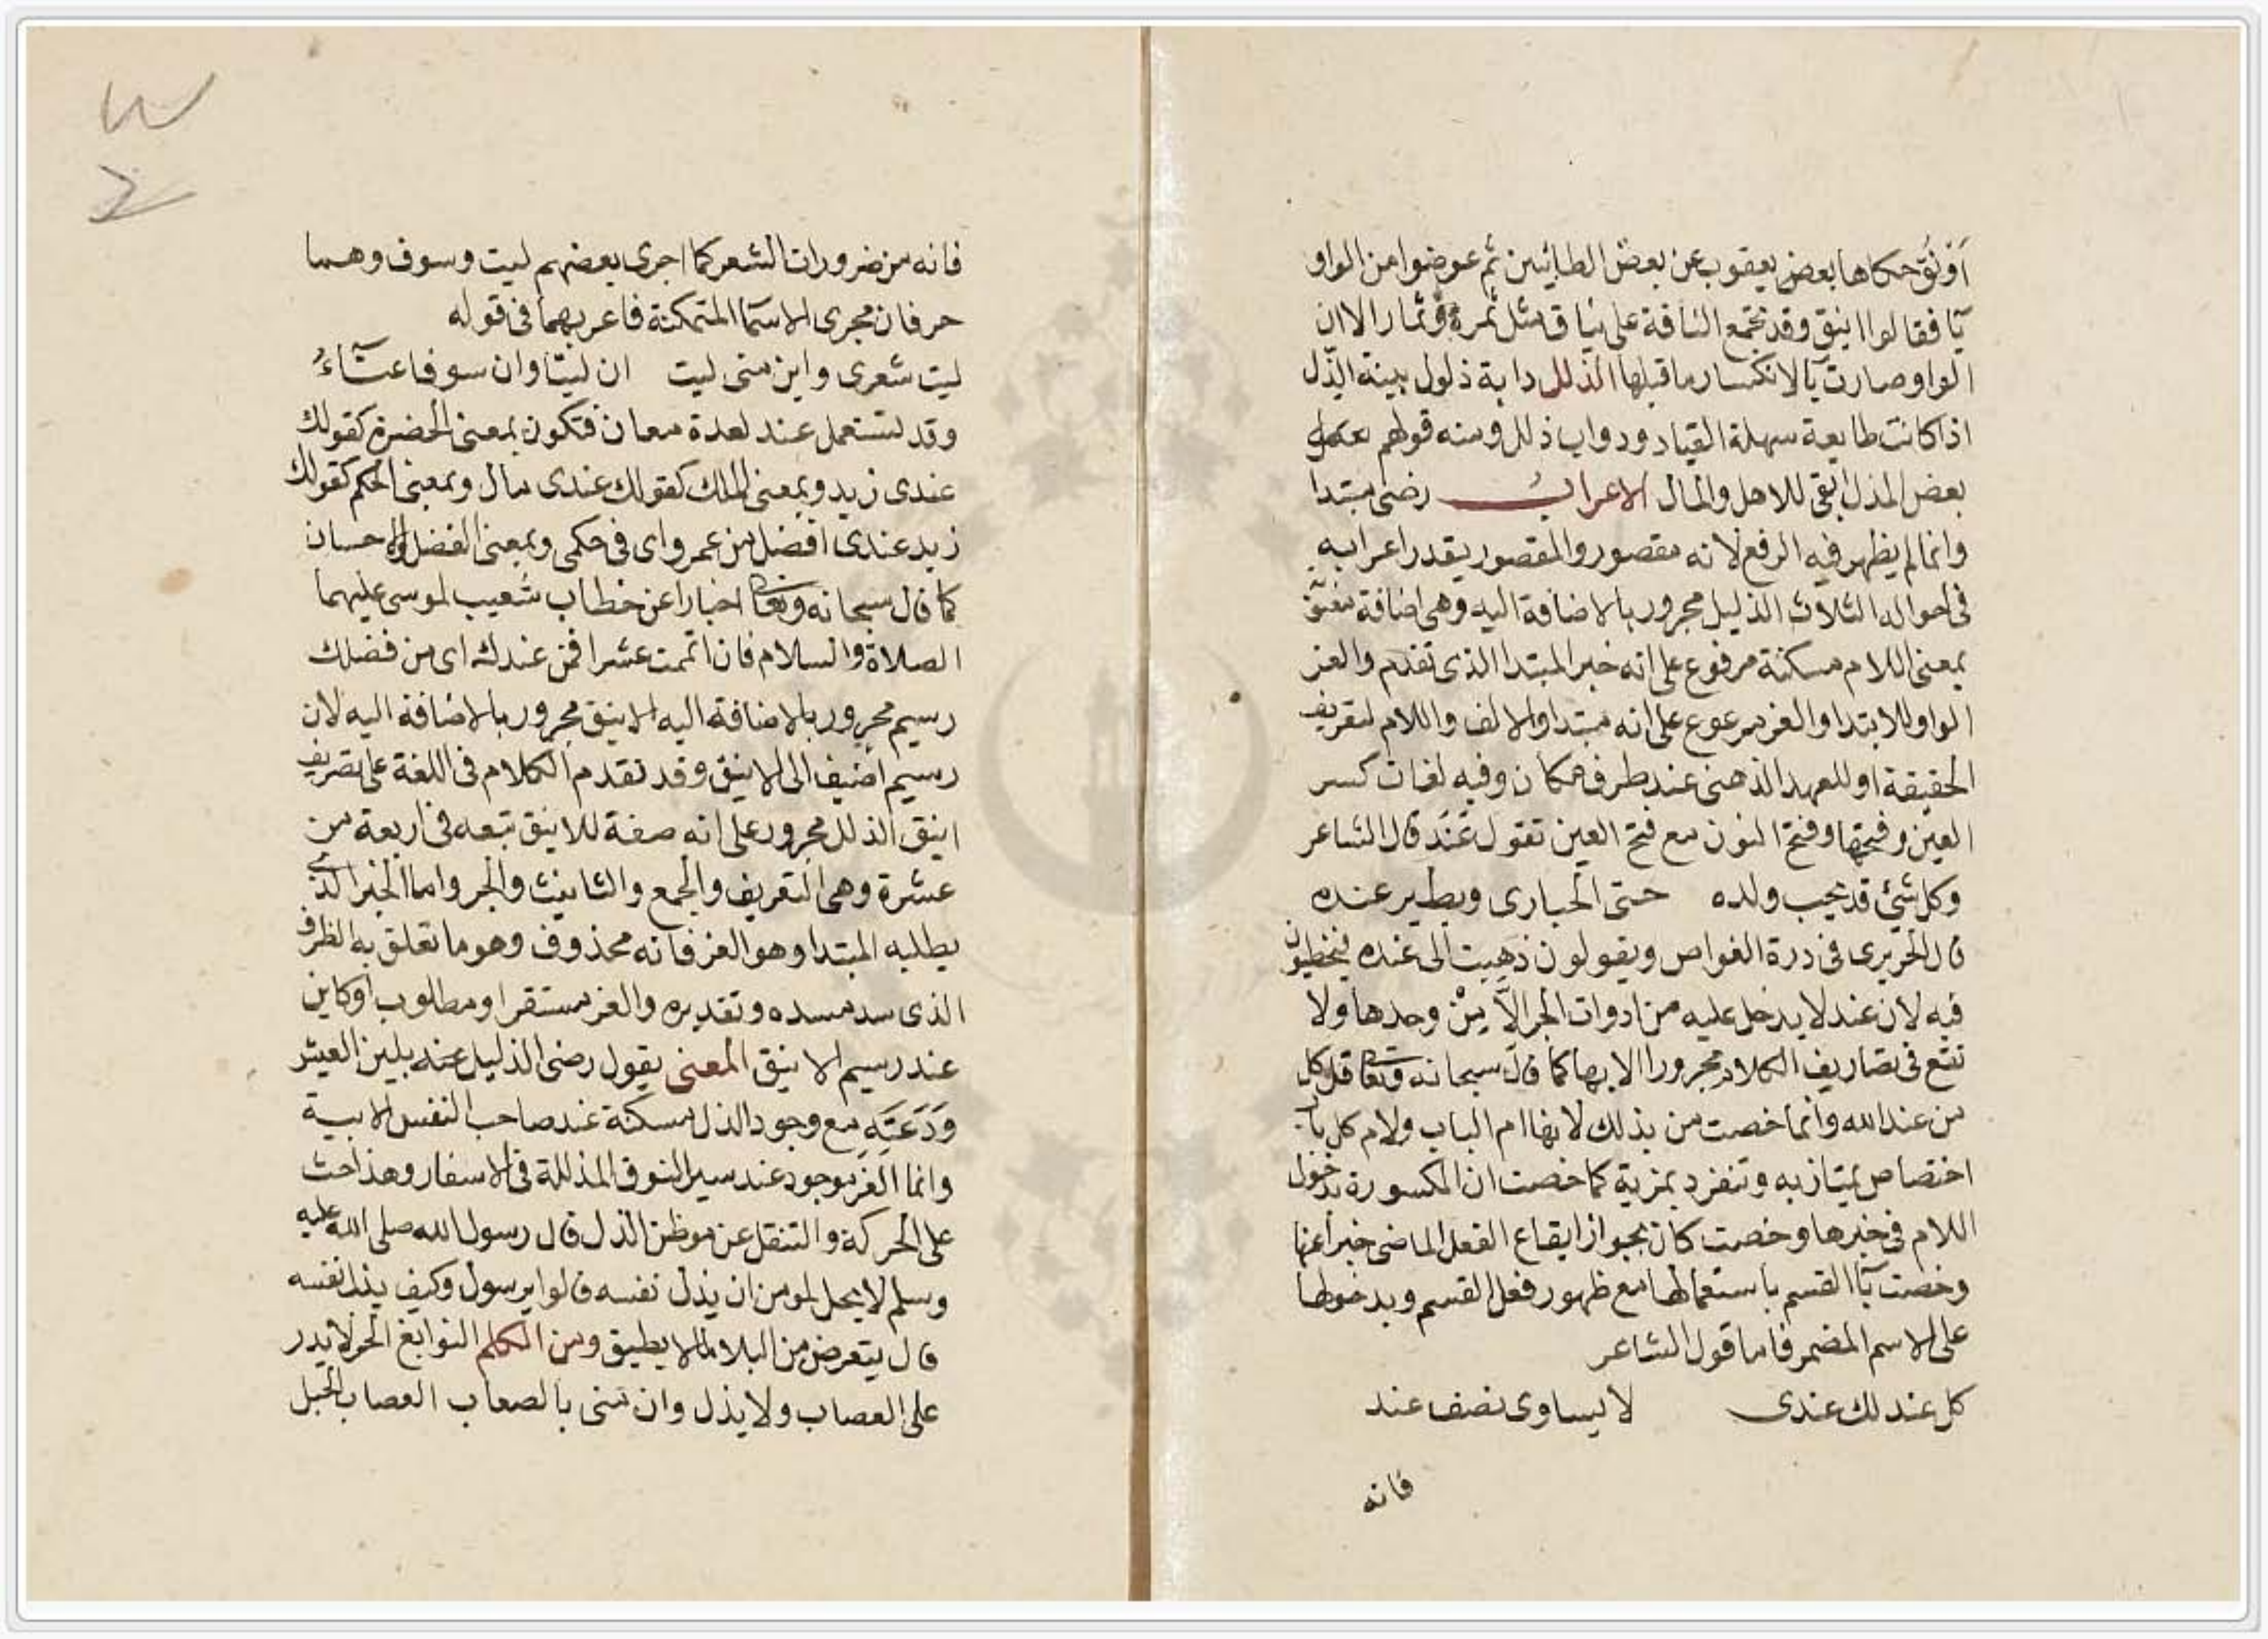 أَوْنُق حكاها بعض يعقوب عن بعض الطائيين ثم عوضوا من الواو
يآ فقالوا اينق وقد تجمع الناقة على نياق مثل ثمرة وثمار الا ان
الواو صارت يآ لانكسار ما قبلها الذلل دابة ذلول بينة الذل
اذا كانت طايعة سهلة القياد ودواب ذلل ومنه قولهم
بعض الذل ابقى للاهل والمال الاعراب رضى مبتدا
وانما لم يظهر فيه الرفع لانه مقصور والمقصور يقدر اعرابه
فى احواله الثلاث الذليل مجرور بالاضافة اليه وهى اضافة
بمعنى اللام مسكنة مرفوع على انه خبر المبتدا الذى تقدم والعز
الواو للابتدا والعز مرعوع على انه مبتدا والالف واللام لتعريف
الحقيقة او للعهد الذهنى عند ظرف مكان وفيه لغات كسر
العين وفتحها وفتح النون مع فتح العين تقول عَنَد قال الشاعر
وكل شئ قد يحب ولده حتى الحبارى ويطير عنده
قال الحريرى فى درة الغواص ويقولون ذهبت الى عنده فيخطيون
فيه لان عند لا يدخل عليه من ادوات الجر الاَّ مِنْ وحدها ولا
تقع فى تصاريف الكلام مجرورا الا بها كما قال سبحانه وتعا قل كل
من عند الله وانما خصت من بذلك لانها ام الباب ولام كل باب
اختصاص تمتاز به وتنفرد بمزية كما خصت ان المكسورة بدخول
اللام فى خبرها وخصت كان بجواز ايقاع الفعل الماضى خبرا عنها
وخصت بآ القسم باستعمالها مع ظهور فعل القسم وبدخولها
على الاسم المضمر فاما قول الشاعر
كل عند لك عندى لا يساوى نصف عند
فانه
فانه من ضرورات الشعر كما اجرى بعضهم ليت وسوف وهما
حرفان مجرى الاسمآ المتمكنة فاعربهما فى قوله
ليت شعرى واين منى ليت ان ليتا وان سوفا عنآءُ
وقد تستعمل عند لعدة معان فتكون بمعنى الحضرة كقولك
عندى زيد وبمعنى الملك كقولك عندى مال وبمعنى الحكم كقولك
زيد عندى افضل من عمرو اى فى حكمى وبمعنى الفضل والاحسان
كما قال سبحانه وتعا اخبارا عن خطاب شعيب لموسى عليهما
الصلاة والسلام فان اتممت عشرا فمن عندك اى من فضلك
رسيم مجرور بالاضافة اليه الاينق مجرور بالاضافة اليه لان
رسيم اضيف الى الاينق وقد تقدم الكلام فى اللغة على تصريف
اينق الذلل مجرور على انه صفة للاينق تتبعه فى اربعة من
عشرة وهى التعريف والجمع والتانيث والجر واما الخبر الذى
يطلبه المبتدا وهو العز فانه محذوف وهو ما تعلق به الظرف
الذى سد مسده وتقديره والعز مستقر او مطلوب او كاين
عند رسيم الاينق المعنى يقول رضى الذليل عنه بلين العيش
وَدَعَتِه مع وجود الذل مسكنة عند صاحب النفس الابية
وانما العز موجود عند سير النوق المذللة فى الاسفار وهذا حث
على الحركة والتنقل عن موطن الذل قال رسول الله صلى الله عليه
وسلم لا يحل لمومن ان يذل نفسه قالوا يرسول وكيف يذل نفسه
قال يتعرض من البلا لما لا يطيق ومن الكلم النوابغ الحر لا يدر
على العصاب ولا يذل وان منى بالصعاب العصاب الحبل